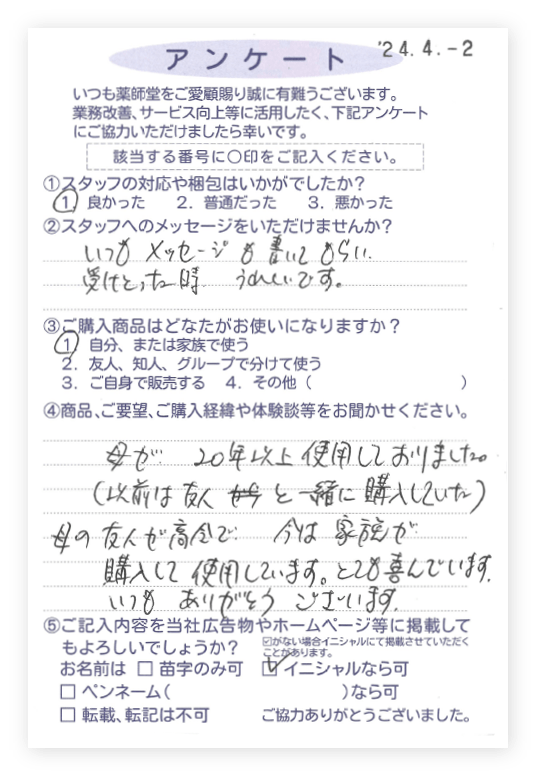 アンケート
'24.4.-2
いつも薬師堂をご愛顧賜り誠に有難うございます。
業務改善、サービス向上等に活用したく、下記アンケート
にご協力いただけましたら幸いです。
該当する番号に〇印をご記入ください。
①スタッフの対応や梱包はいかがでしたか？
1. 良かった　2. 普通だった　3. 悪かった
②スタッフへのメッセージをいただけませんか？
いつも メッセージ も 書いて もらい.
受けとった時 うれしいです。
③ご購入商品はどなたがお使いになりますか？
1 自分、または家族で使う
2. 友人、知人、グループで分けて使う
3. ご自身で販売する　4. その他（　　　　　　　　）
④商品、ご要望、ご購入経緯や体験談等をお聞かせください。
母が 20年以上 使用しておりました。
（以前は友人 と 一緒に 購入していた）
母の友人が高令で 今は 家族が
購入して 使用しています。とても喜んでいます.
いつも ありがとう ございます.
⑤ご記入内容を当社広告物やホームページ等に掲載して
もよろしいでしょうか？
☑がない場合イニシャルにて掲載させていただく
ことがあります。
お名前は □ 苗字のみ可 ☑ イニシャルなら可
□ ペンネーム（　　　　　　　　　　）なら可
□ 転載、転記は不可
ご協力ありがとうございました。